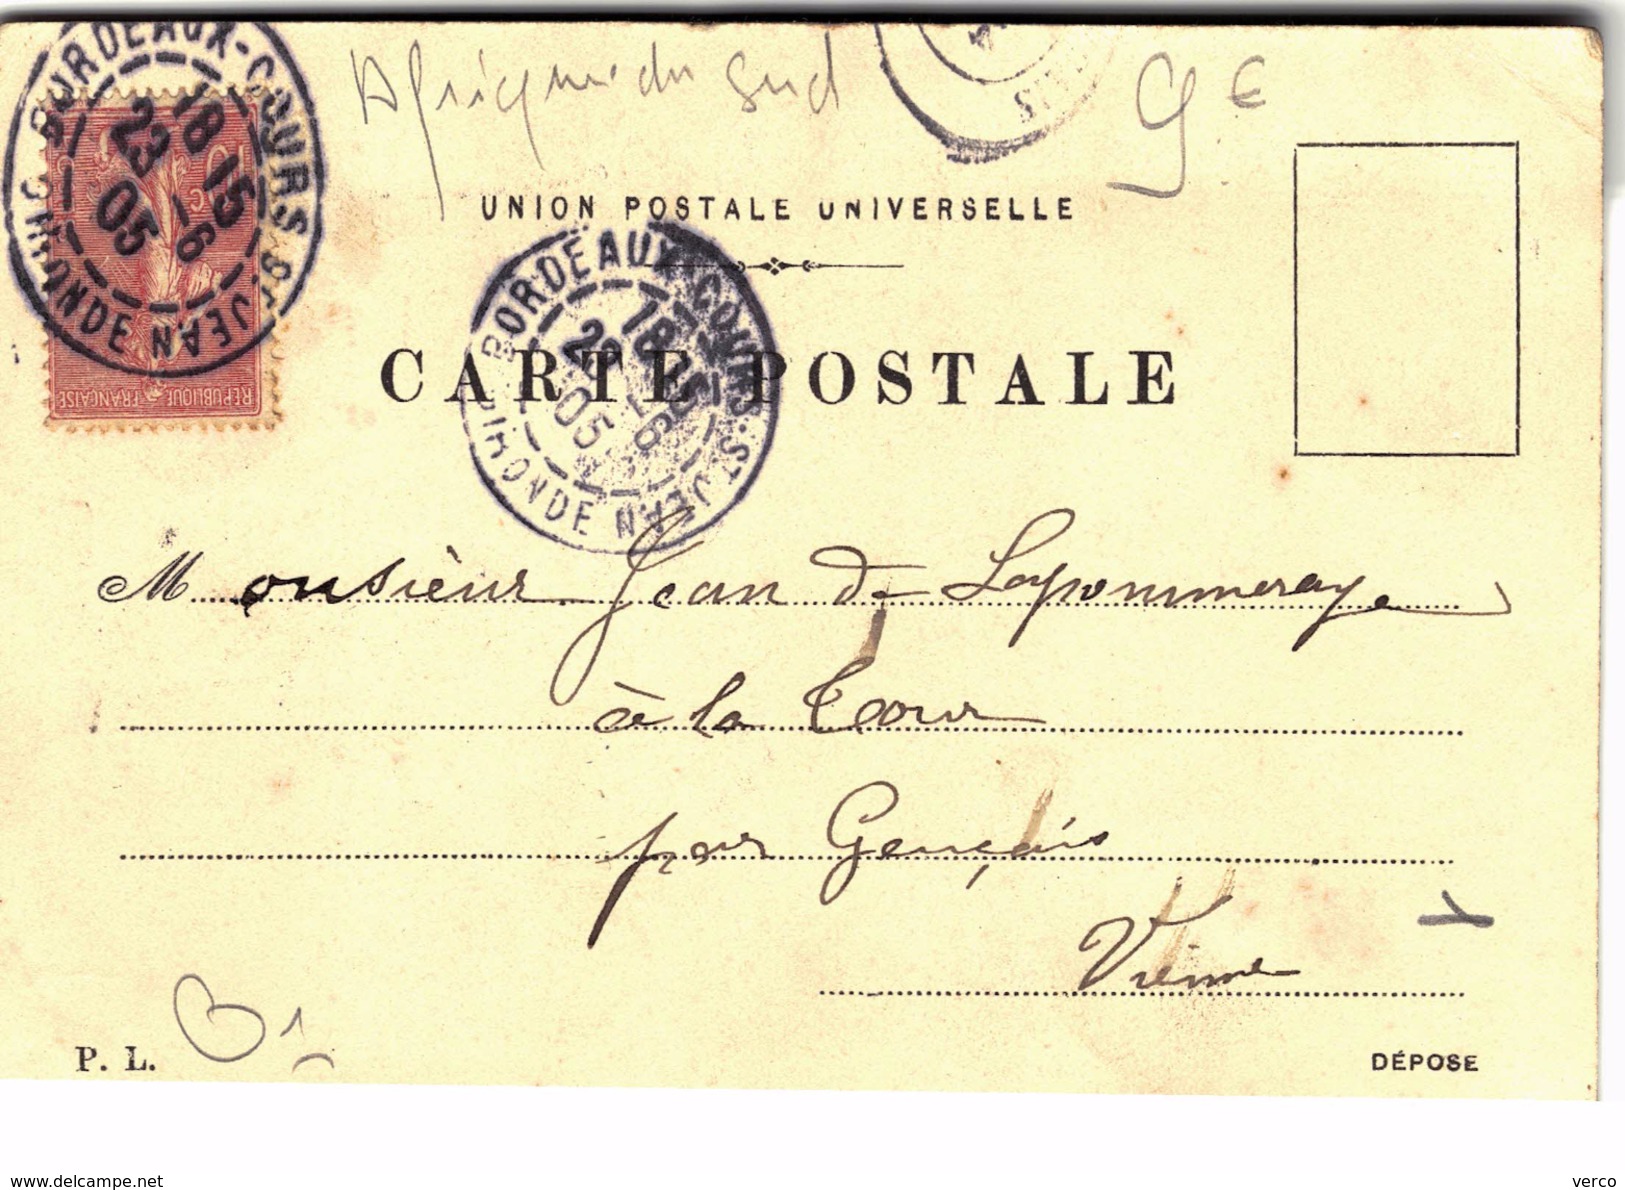 Afrique du Sud
9 €
BORDEAUX-COURS ST JEAN
18 15
23 -6
05
GIRONDE
RÉPUBLIQUE FRANÇAISE
UNION POSTALE UNIVERSELLE
BORDEAUX-COURS ST JEAN
18 15
23 -6
05
GIRONDE
CARTE POSTALE
Monsieur Jean de Lapommeraye
à la Tour
par Gençais
Vienne
P. L.
DÉPOSE
delcampe.net
verco